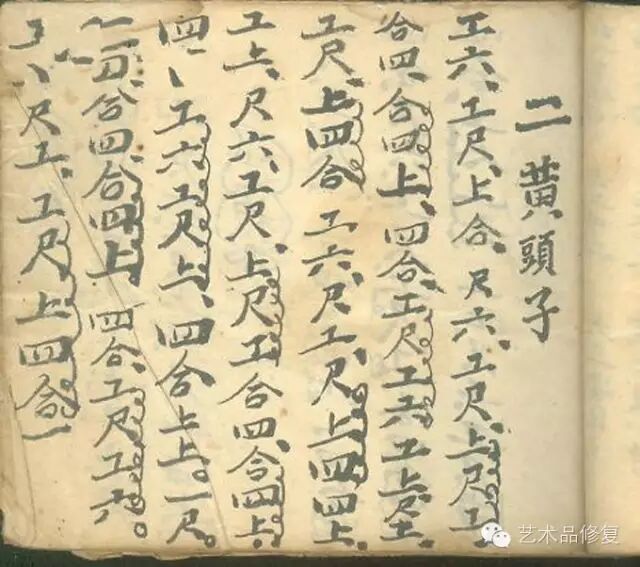 二黄頭子
工六、工尺、上合、尺六、工尺、上尺工、
合四、合四上、四合、工尺工六工上尺工
工尺、上四合工六、尺、工尺、上四四上、
工上、尺六、工尺、上尺、工合四合四上、
四、、工六、工尺上、四合上上。一尺。
合四合四上四合、工尺、工六。
工、尺工、工尺、上四合一
艺术品修复